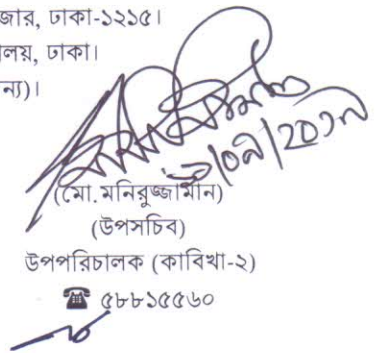 জার, ঢাকা-১২১৫।
লয়, ঢাকা।
ন্য)।
(মো. মনিরুজ্জামান)
(উপসচিব)
উপপরিচালক (কাবিখা-২)
☎ ৫৮৮১৫৫৬০